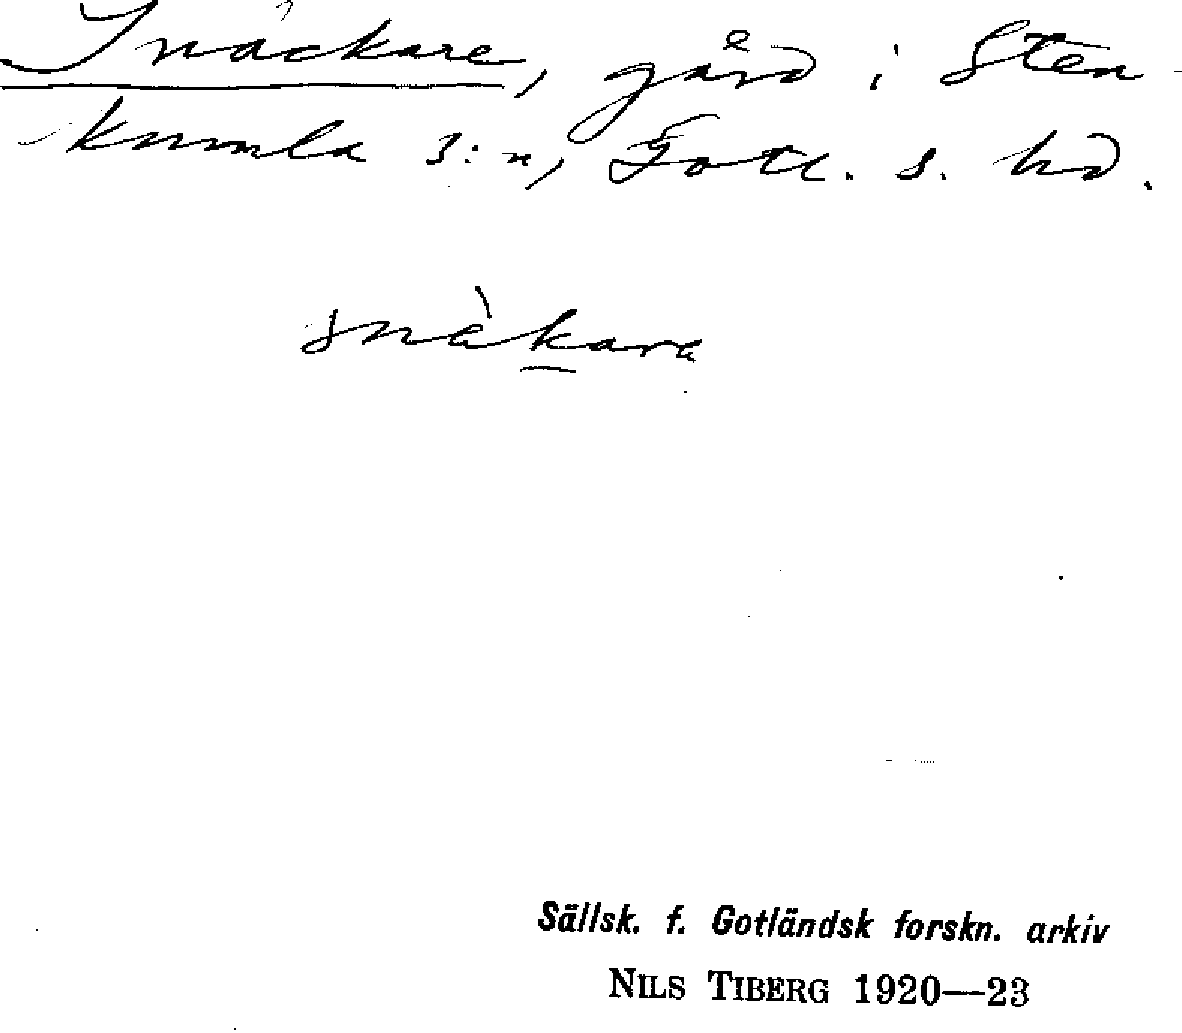 Snäckare, gård i Sten-
kumla s:n, Gotl. s. hd.
snäkara
Sällsk. f. Gotländsk forskn. arkiv
NILS TIBERG 1920—23